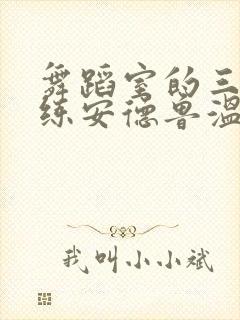 舞蹈室的三
练安德鲁温
我叫小小斌